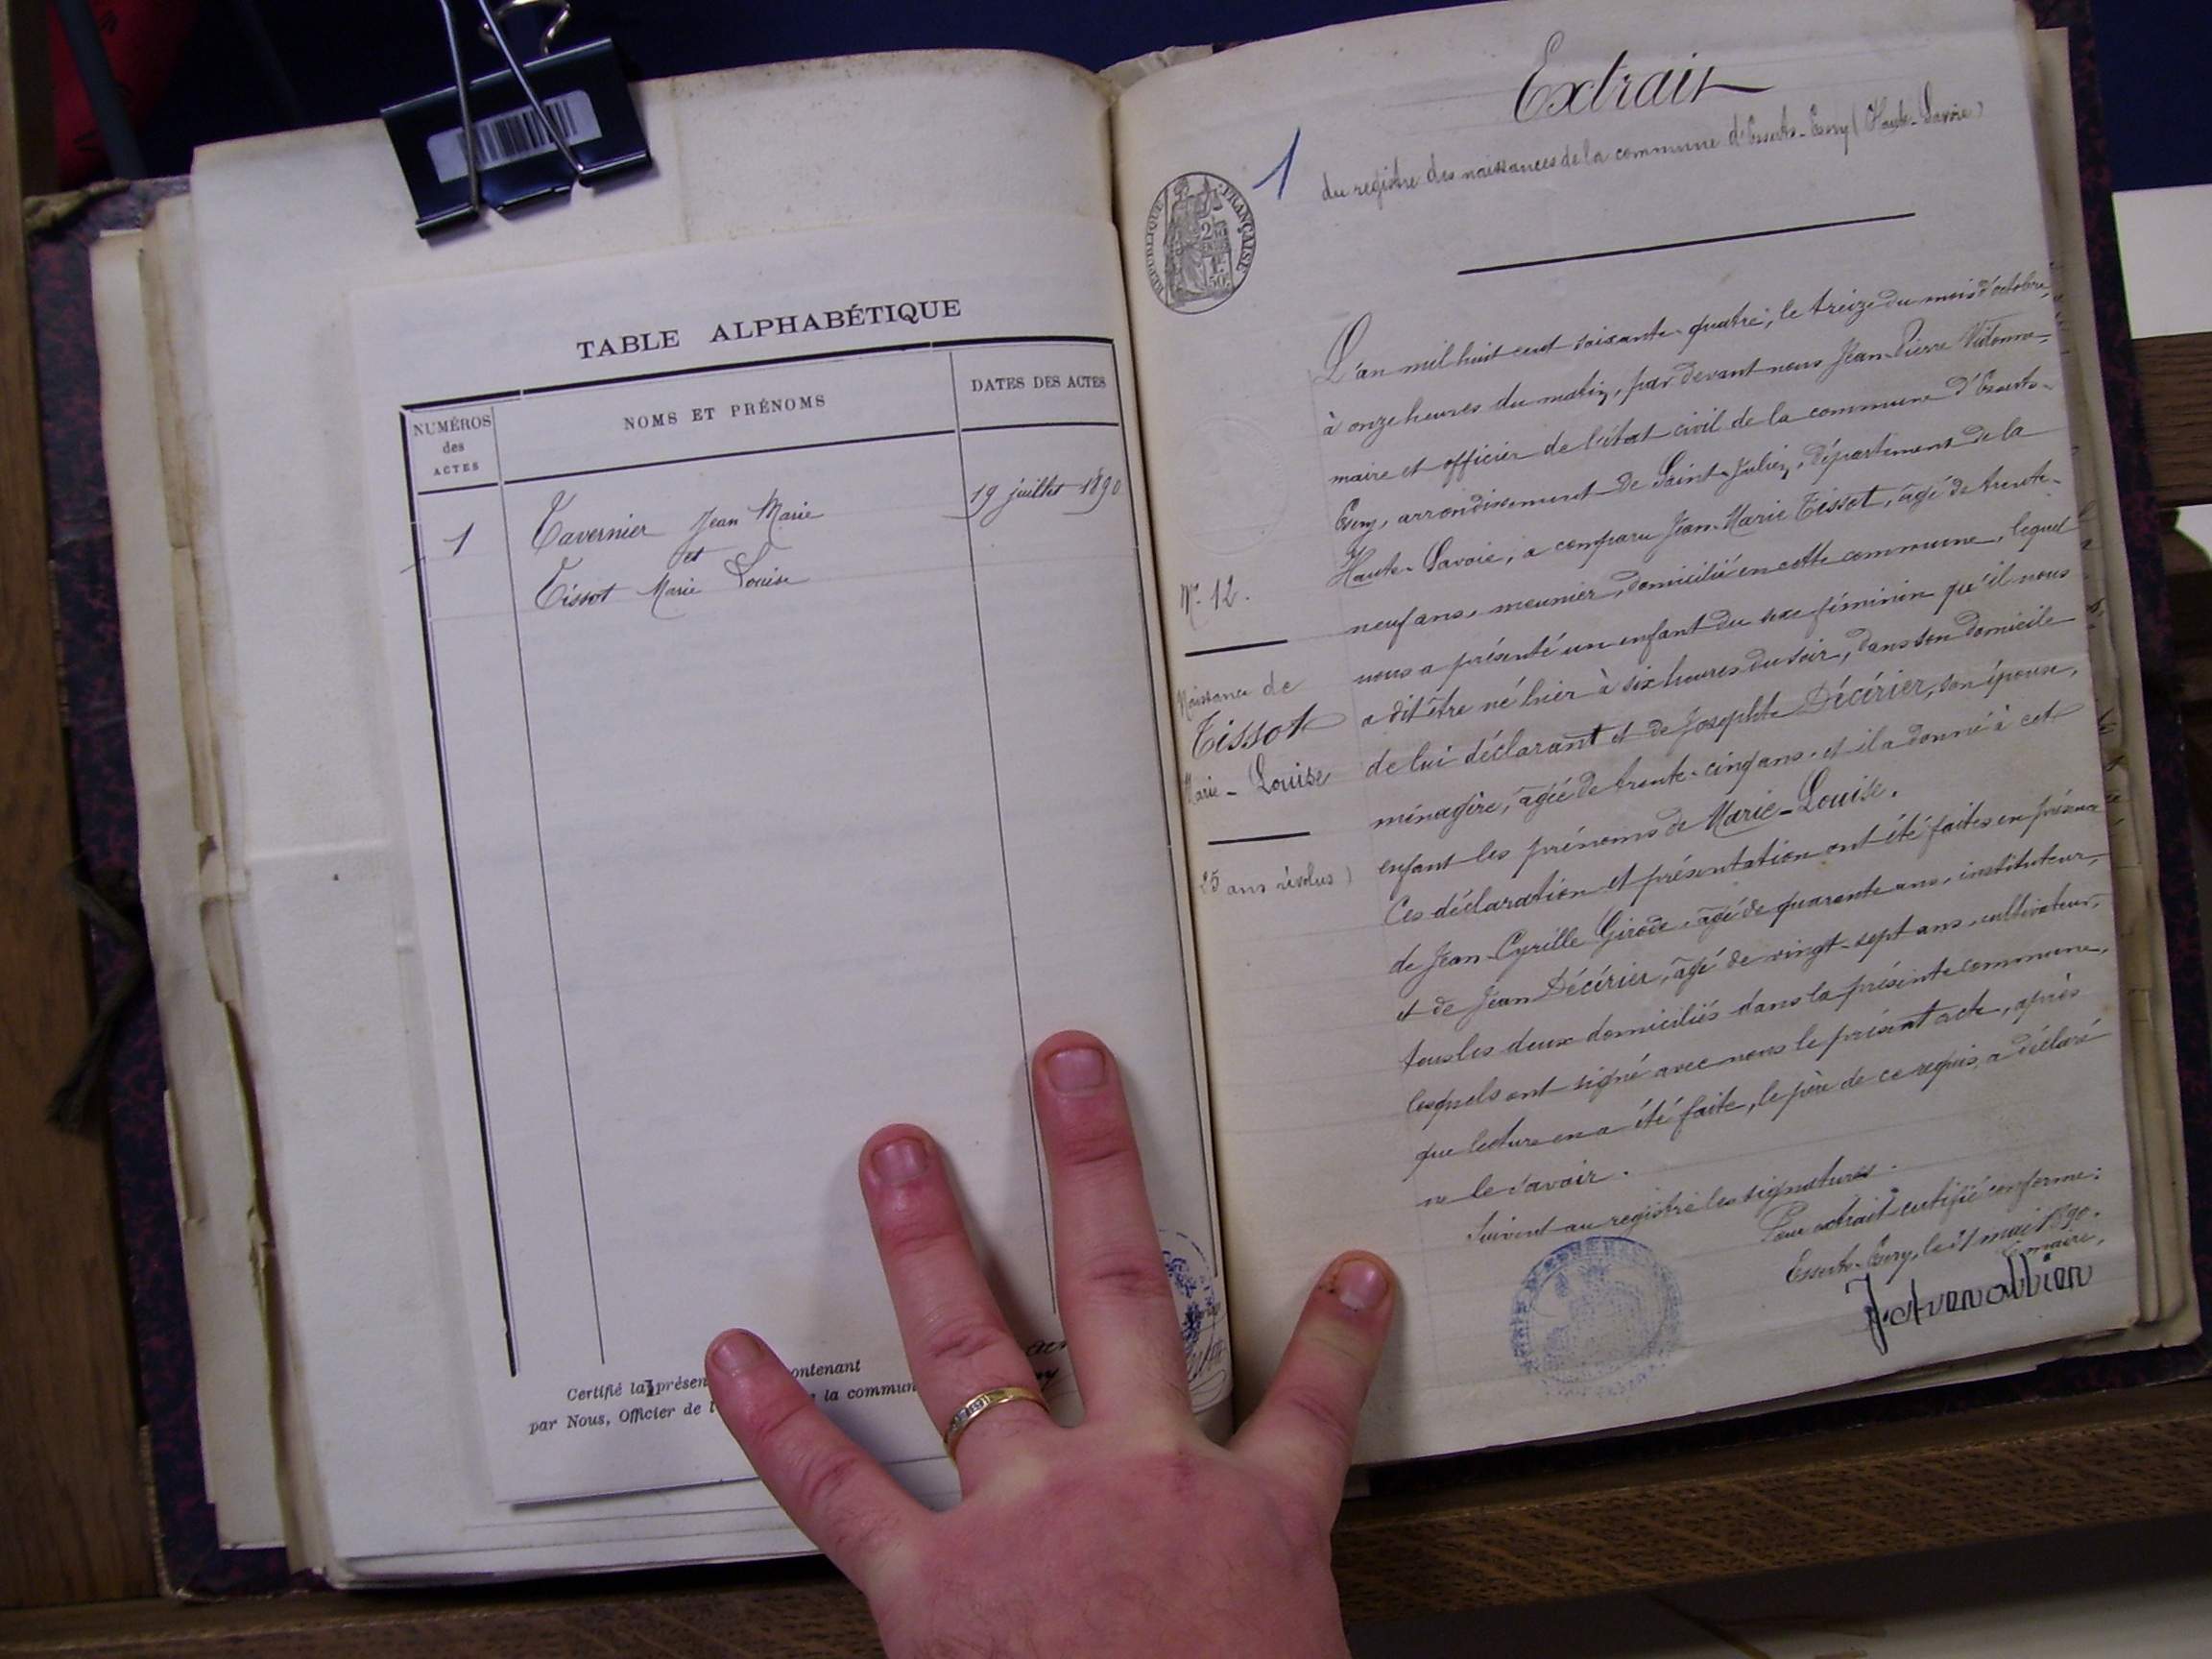 TABLE ALPHABÉTIQUE
NUMÉROS
des
ACTES
NOMS ET PRÉNOMS
DATES DES ACTES
1
Tavernier Jean Marie
et
Tissot Marie Louise
19 juillet 1890
Certifié la présen ontenant
par Nous, Officier de l la commun
Extrait
1
du registre des naissances de la commune d'Esserts-Esery (Haute-Savoie)
RÉPUBLIQUE FRANÇAISE
L'an mil huit cent soixante-quatre, le treize du mois d'octobre,
à onze heures du matin, par devant nous Jean-Pierre
maire et officier de l'état civil de la commune d'Esserts-
Esery, arrondissement de Saint-Julien, département de la
Haute-Savoie, a comparu Jean-Marie Tissot, âgé de trente-
neuf ans, meunier, domicilié en cette commune, lequel
nous a présenté un enfant du sexe féminin qu'il nous
a dit être né hier à six heures du soir, dans son domicile
de lui déclarant et de Josephte Décérier, son épouse,
ménagère, âgée de trente-cinq ans. et il a donné à cet
enfant les prénoms de Marie-Louise.
Ces déclaration et présentation ont été faites en présence
de Jean-Cyrille Girode, âgé de quarante ans, instituteur,
et de Jean Décérier, âgé de vingt-sept ans, cultivateur,
tous les deux domiciliés dans la présente commune,
lesquels ont signé avec nous le présent acte, après
que lecture en a été faite, le père de ce requis, a déclaré
ne le savoir.
Suivent au registre les signatures.
Pour extrait certifié conforme:
Esserts-Esery, le 31 mai 1890.
Le maire,
N° 12.
Naissance de
Tissot
Marie-Louise
25 ans révolus)